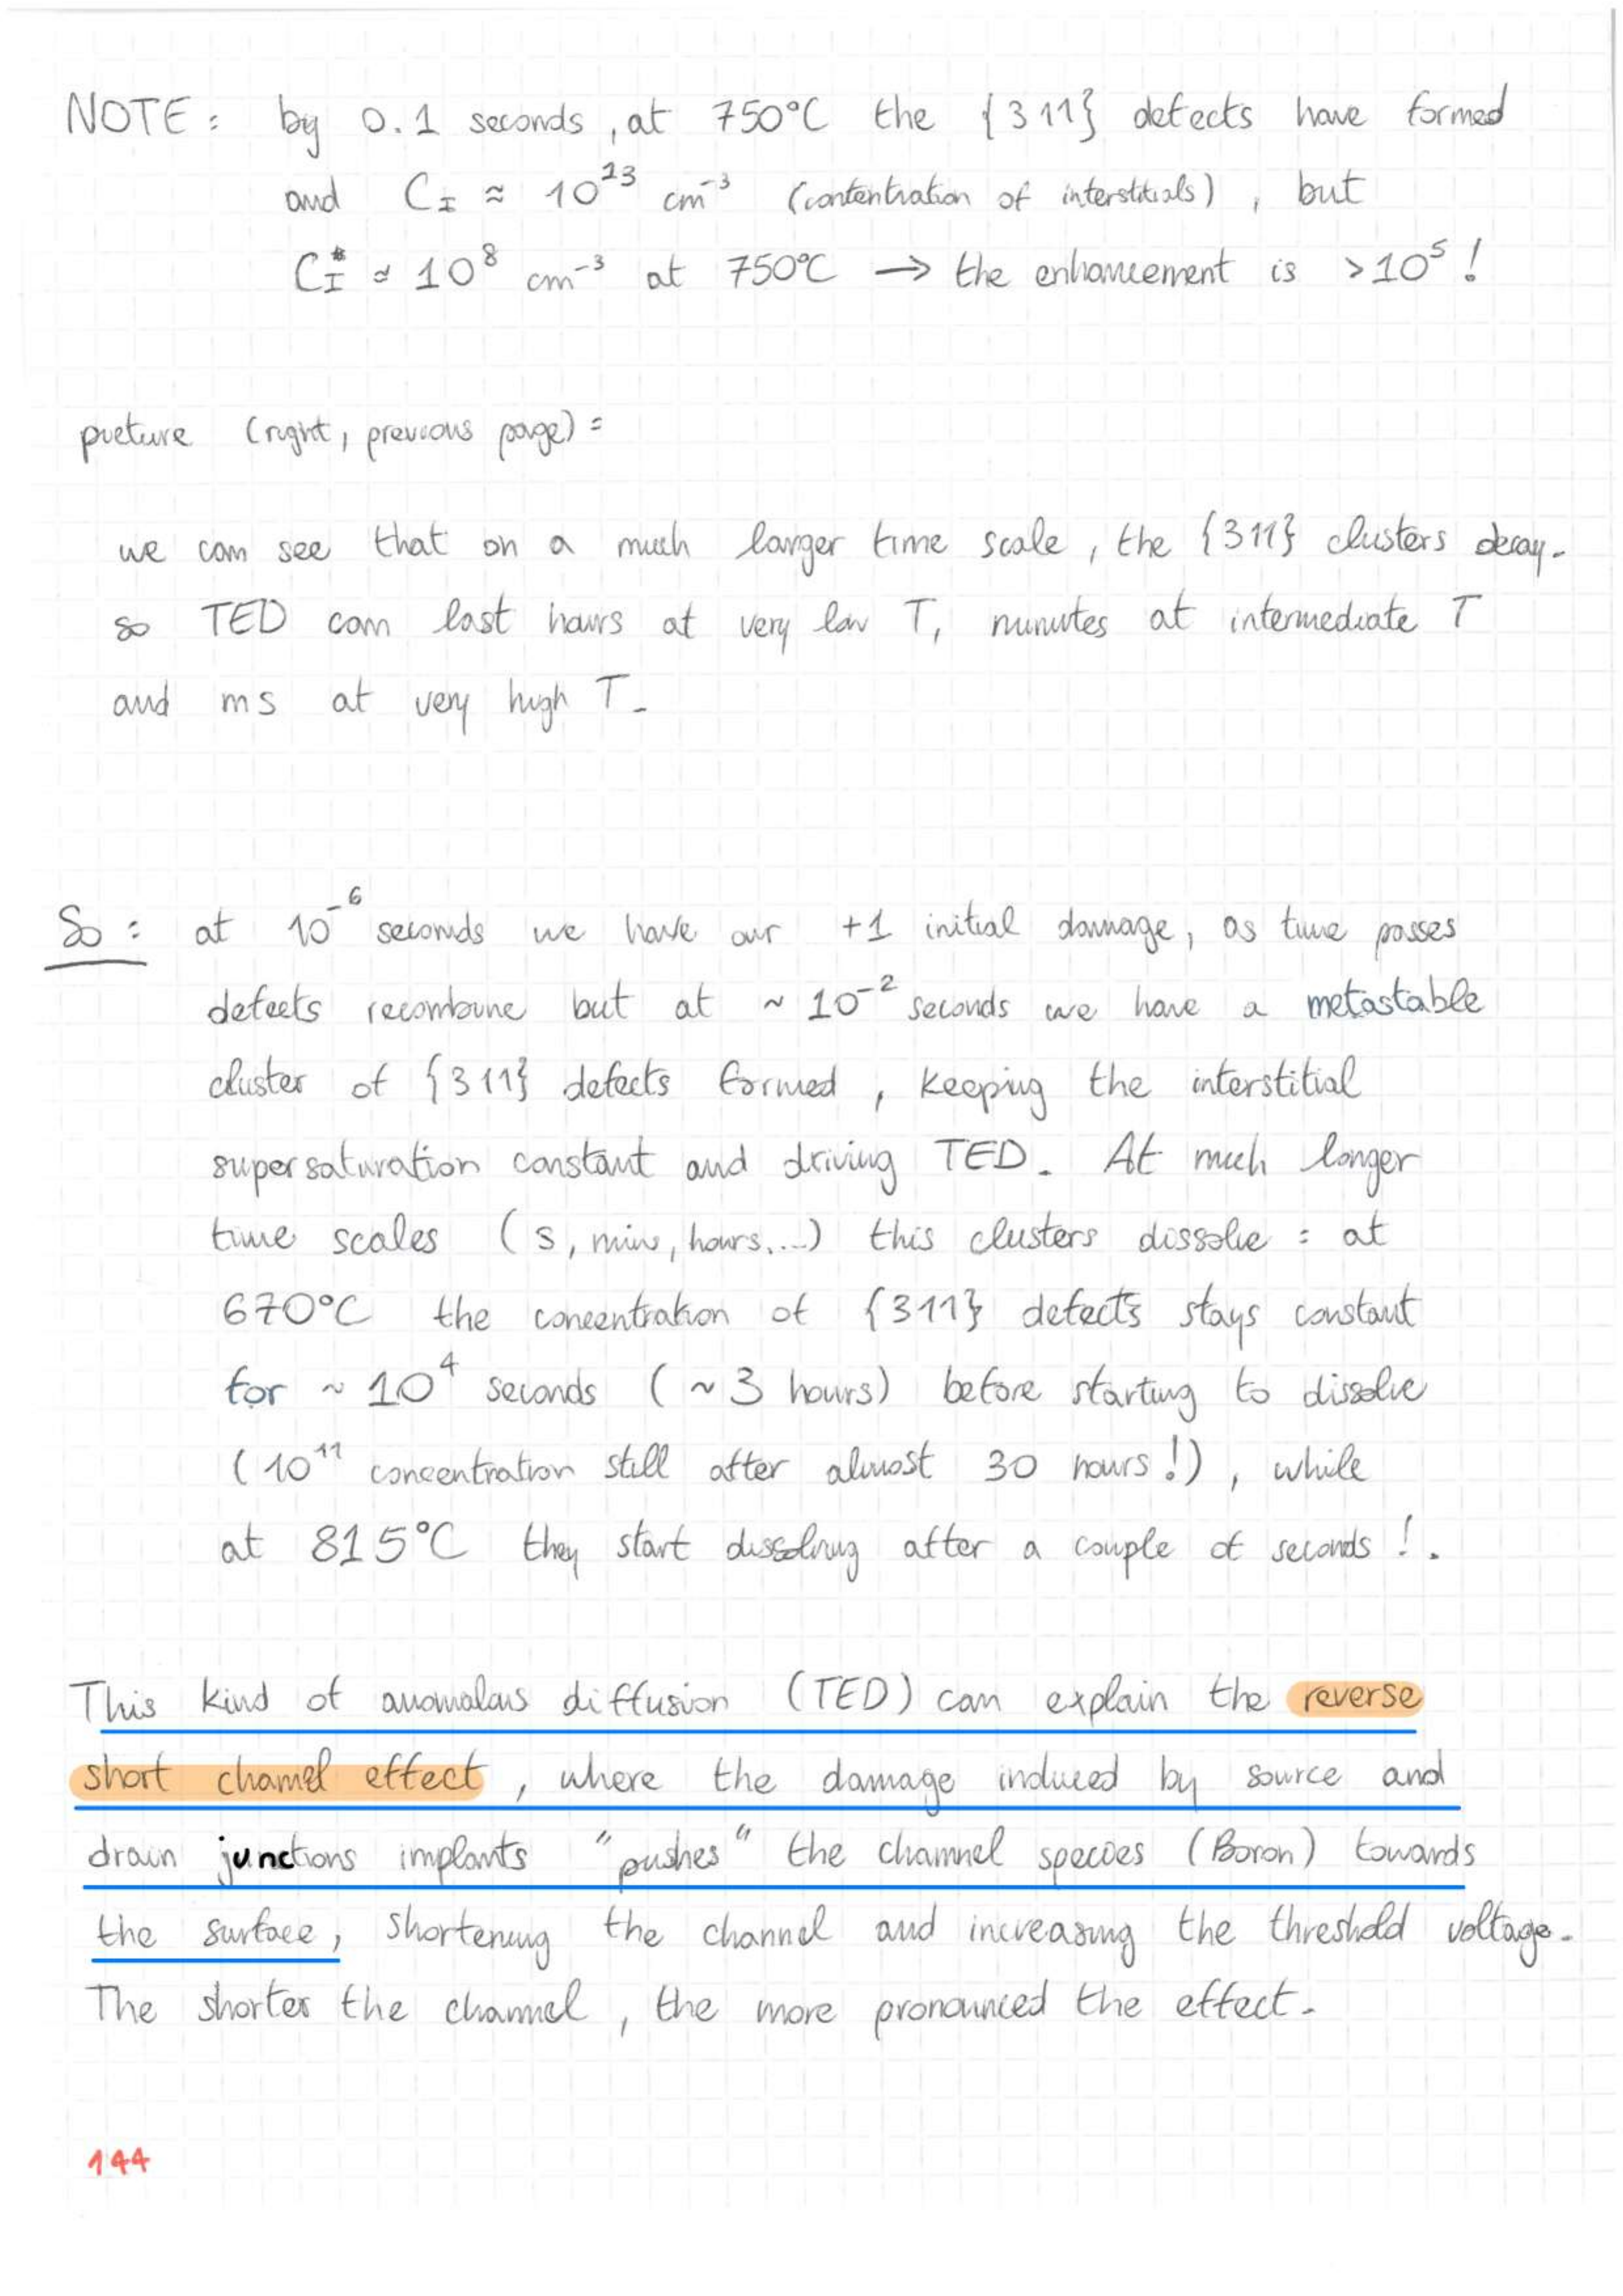 NOTE : by 0.1 seconds, at 750°C the {311} defects have formed
and C_I ≈ 10^13 cm^-3 (contentration of interstitials), but
C_I^* ≈ 10^8 cm^-3 at 750°C → the enhancement is >10^5 !
picture (right, previous page) :
we can see that on a much larger time scale, the {311} clusters decay.
so TED can last hours at very low T, minutes at intermediate T
and ms at very high T.
So : at 10^-6 seconds we have our +1 initial damage, as time passes
defects recombine but at ~ 10^-2 seconds we have a metastable
cluster of {311} defects formed, keeping the interstitial
supersaturation constant and driving TED. At much longer
time scales (s, mins, hours,...) this clusters dissolve : at
670°C the concentration of {311} defects stays constant
for ~ 10^4 seconds (~3 hours) before starting to dissolve
(10^11 concentration still after almost 30 hours!), while
at 815°C they start dissolving after a couple of seconds !.
This kind of anomalous diffusion (TED) can explain the reverse
short channel effect, where the damage induced by source and
drain junctions implants "pushes" the channel species (Boron) towards
the surface, shortening the channel and increasing the threshold voltage.
The shorter the channel, the more pronounced the effect.
144